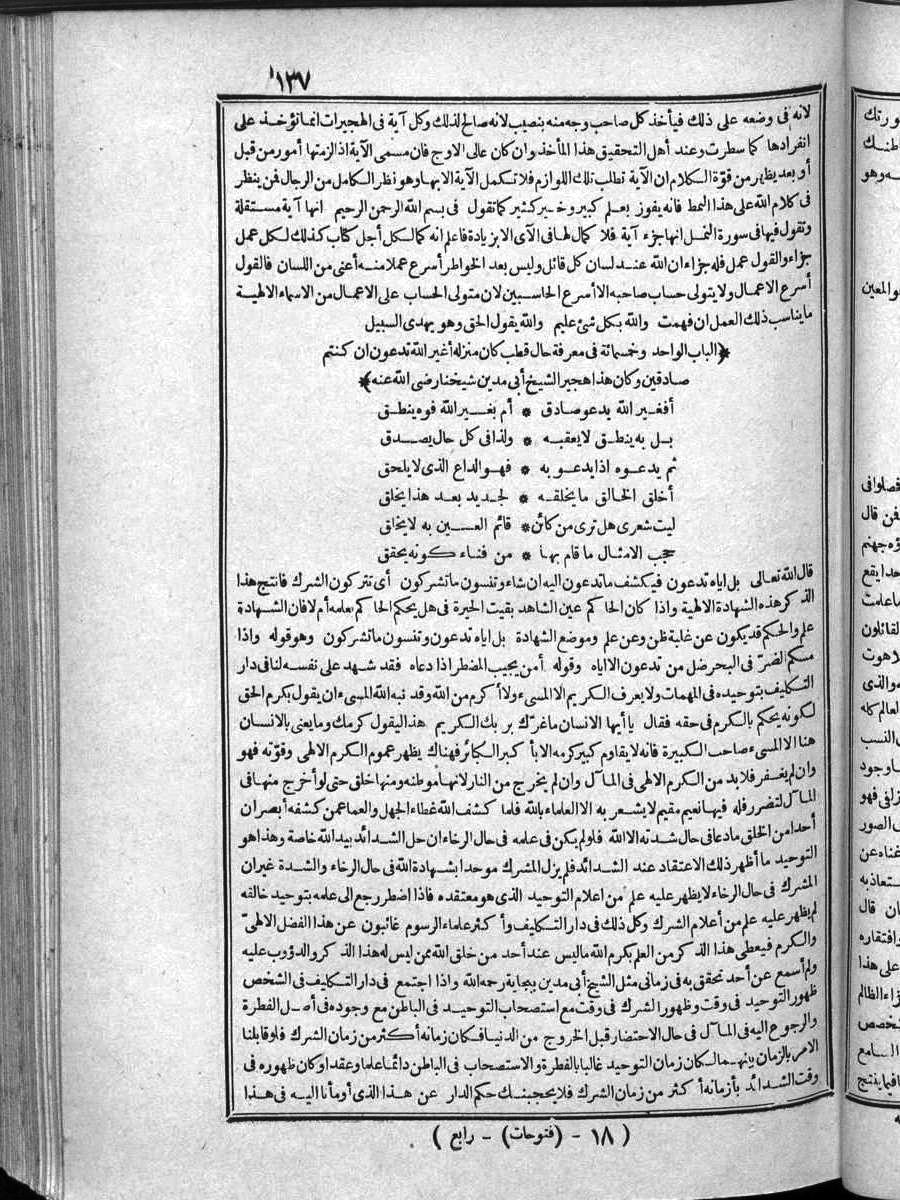 ١٣٧
لانه فى وضعه على ذلك فيأخذ كل صاحب وجه منه بنصيب لانه صالح لذلك وكل آية فى الهجيرات انما نؤخذ على
انفرادها كما سطرت وعند أهل التحقيق هذا المأخذ وان كان عالى الاوج فان مسمى الآية اذا لزمتها أمور من قبل
أو بعد يظهر من قوة الكلام ان الآية تطلب تلك اللوازم فلا تكمل الآية الا بها وهو نظر الكامل من الرجال فمن ينظر
فى كلام الله على هذا النمط فانه يفوز بعلم كبير وخير كثير كما تقول فى بسم الله الرحمن الرحيم انها آية مستقلة
وتقول فيها فى سورة النمل انها جزء آية فلا كمال لها فى الآى الا بزيادة فاعلم انه كما لكل أجل كتاب كذلك لكل عمل
جزاء والقول عمل فله جزاء ان الله عند لسان كل قائل وليس بعد الخواطر أسرع عملا منه أعنى من اللسان فالقول
أسرع الاعمال ولا يتولى حساب صاحبه الا أسرع الحاسبين لان متولى الحساب على الاعمال من الاسماء الالهية
ما يناسب ذلك العمل ان فهمت والله بكل شئ عليم والله يقول الحق وهو يهدى السبيل
﴿الباب الواحد وخمسمائة فى معرفة حال قطب كان منزله أغير الله تدعون ان كنتم
صادقين وكان هذا هجير الشيخ أبى مدين شيخنا رضى الله عنه﴾
أفغير الله يدعو صادق * أم بغير الله فوه ينطق
بل به ينطق لا يعقبه * ولذا فى كل حال يصدق
ثم يدعوه اذا يدعو به * فهو الداع الذى لا يلحق
أخلق الخالق ما يخلقه * لجديد بعد هذا يخلق
ليت شعرى هل ترى من كائن * قائم العين به لا يخلق
حجب الامثال ما قام بها * من فناء كونه يحقق
قال الله تعالى بل اياه تدعون فيكشف ما تدعون اليه ان شاء وتنسون ما تشركون أى تتركون الشرك فانتج هذا
الذكر هذه الشهادة الالهية واذا كان الحاكم عين الشاهد بقيت الحيرة فى هل يحكم الحاكم بعلمه أم لا فان الشهادة
علم والحكم قد يكون عن غلبة ظن وعن علم وموضع الشهادة بل اياه تدعون وتنسون ما تشركون وهو قوله واذا
مسكم الضر فى البحر ضل من تدعون الا اياه وقوله أمن يجيب المضطر اذا دعاه فقد شهد على نفسه لنا فى دار
التكليف بتوحيده فى المهمات ولا يعرف الكريم الا المسىء ولا أكرم من الله وقد نبه الله المسىء ان يقول بكرم الحق
لكونه يحكم بالكرم فى حقه فقال يا أيها الانسان ما غرك بربك الكريم هذا ليقول كرمك وما يعنى بالانسان
هنا الا المسىء صاحب الكبيرة فانه لا يقاوم كبير كرمه الا بأكبر الكبائر فهناك يظهر عموم الكرم الالهى وقوته فهو
وان لم يغفر فلا بد من الكرم الالهى فى المآل وان لم يخرج من النار لانها موطنه ومنها خلق حتى لو أخرج منها فى
المآل لتضرر فله فيها نعيم مقيم لا يشعر به الا العلماء بالله فلما كشف الله غطاء الجهل والعما عمن كشفه أبصر ان
أحدا من الخلق ما دعا فى حال شدته الا الله فلو لم يكن فى علمه فى حال الرخاء ان حل الشدائد بيد الله خاصة وهذا هو
التوحيد ما أظهر ذلك الاعتقاد عند الشدائد فلم يزل المشرك موحدا بشهادة الله فى حال الرخاء والشدة غير ان
المشرك فى حال الرخاء لا يظهر عليه علم من اعلام التوحيد الذى هو معتقده فاذا اضطر رجع الى علمه بتوحيد خالقه
لم يظهر عليه علم من أعلام الشرك وكل ذلك فى دار التكليف وأكثر علماء الرسوم غائبون عن هذا الفضل الالهى
والكرم فيعطى هذا الذكر من العلم بكرم الله ما ليس عند أحد من خلق الله ممن ليس له هذا الذكر والدؤوب عليه
ولم أسمع عن أحد تحقق به فى زمانى مثل الشيخ أبى مدين ببجاية رحمه الله واذا اجتمع فى دار التكليف فى الشخص
ظهور التوحيد فى وقت وظهور الشرك فى وقت مع استصحاب التوحيد فى الباطن مع وجوده فى أصل الفطرة
والرجوع اليه فى المآل فى حال الاحتضار قبل الخروج من الدنيا فكان زمانه أكثر من زمان الشرك فلو قابلنا
الامر بالزمان بينهما لكان زمان التوحيد غالبا بالفطرة والاستصحاب فى الباطن دائما علما وعقدا وكان ظهوره فى
وقت الشدائد بأزمانه أكثر من زمان الشرك فلا يحجبنك حكم الدار عن هذا الذى أومأنا اليه فى هذا
( ١٨ - (فتوحات) - رابع )